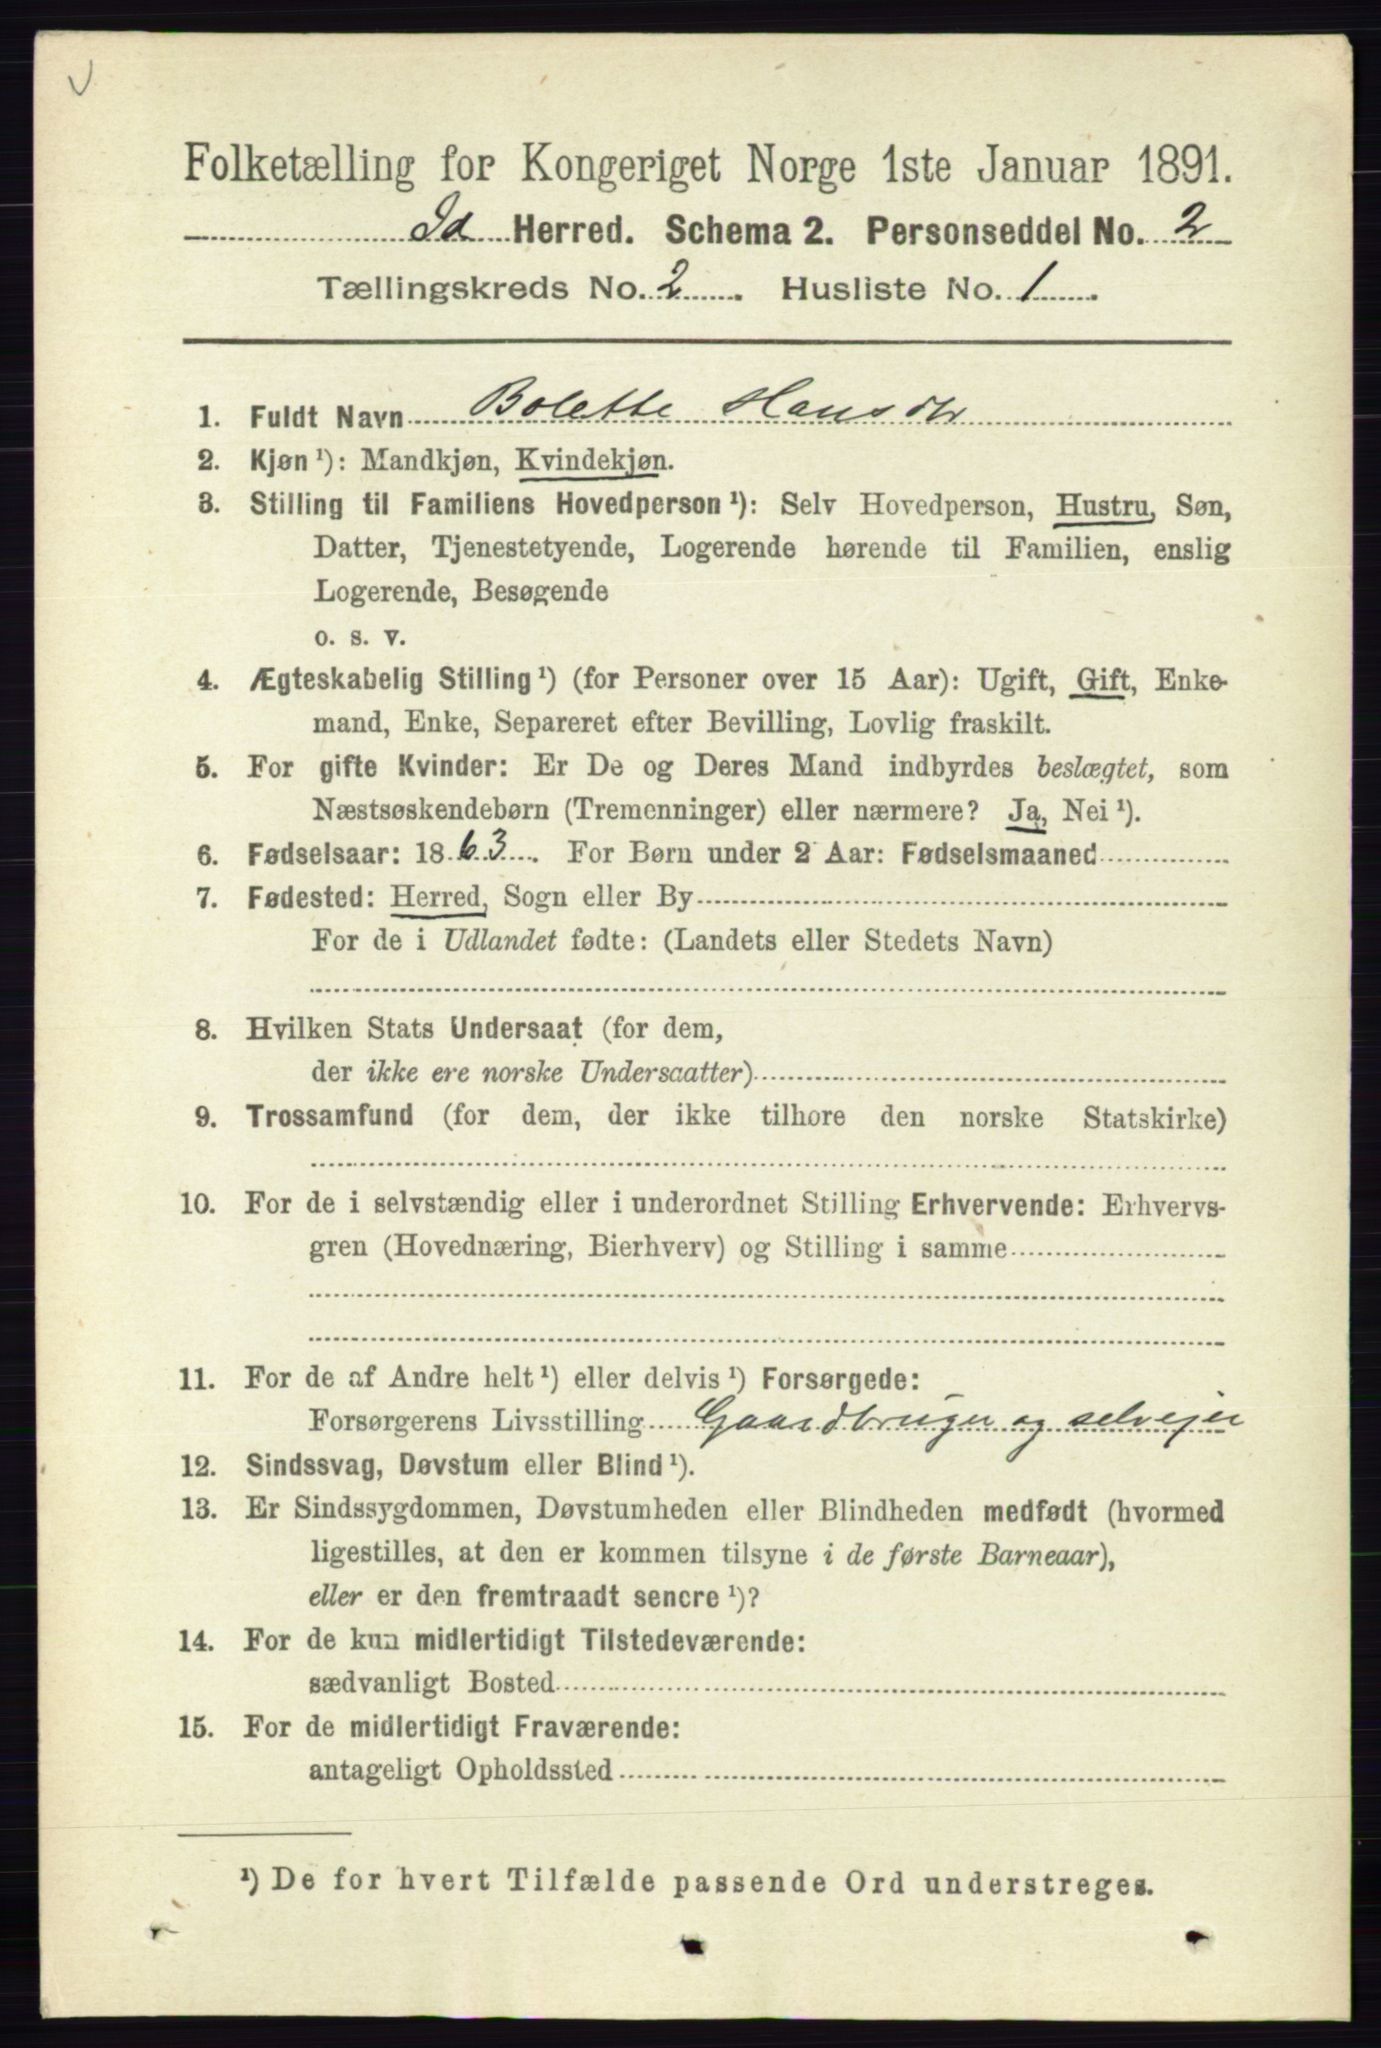 Folketælling for Kongeriget Norge 1ste Januar 1891.
Id Herred. Schema 2. Personseddel No. 2
Tællingskreds No. 2. Husliste No. 1.
1. Fuldt Navn Bolette Hansdtr
2. Kjøn ¹): Mandkjøn, Kvindekjøn.
3. Stilling til Familiens Hovedperson ¹): Selv Hovedperson, Hustru, Søn,
Datter, Tjenestetyende, Logerende hørende til Familien, enslig
Logerende, Besøgende
o. s. v.
4. Ægteskabelig Stilling ¹) (for Personer over 15 Aar): Ugift, Gift, Enke-
mand, Enke, Separeret efter Bevilling, Lovlig fraskilt.
5. For gifte Kvinder: Er De og Deres Mand indbyrdes beslægtet, som
Næstsøskendebørn (Tremenninger) eller nærmere? Ja, Nei ¹).
6. Fødselsaar: 1863. For Børn under 2 Aar: Fødselsmaaned
7. Fødested: Herred, Sogn eller By
For de i Udlandet fødte: (Landets eller Stedets Navn)
8. Hvilken Stats Undersaat (for dem,
der ikke ere norske Undersaatter)
9. Trossamfund (for dem, der ikke tilhøre den norske Statskirke)
10. For de i selvstændig eller i underordnet Stilling Erhvervende: Erhvervs-
gren (Hovednæring, Bierhverv) og Stilling i samme
11. For de af Andre helt ¹) eller delvis ¹) Forsørgede:
Forsørgerens Livsstilling Gaardbruger og selvejer
12. Sindssvag, Døvstum eller Blind ¹).
13. Er Sindssygdommen, Døvstumheden eller Blindheden medfødt (hvormed
ligestilles, at den er kommen tilsyne i de første Barneaar),
eller er den fremtraadt senere ¹)?
14. For de kun midlertidigt Tilstedeværende:
sædvanligt Bosted
15. For de midlertidigt Fraværende:
antageligt Opholdssted
¹) De for hvert Tilfælde passende Ord understreges.